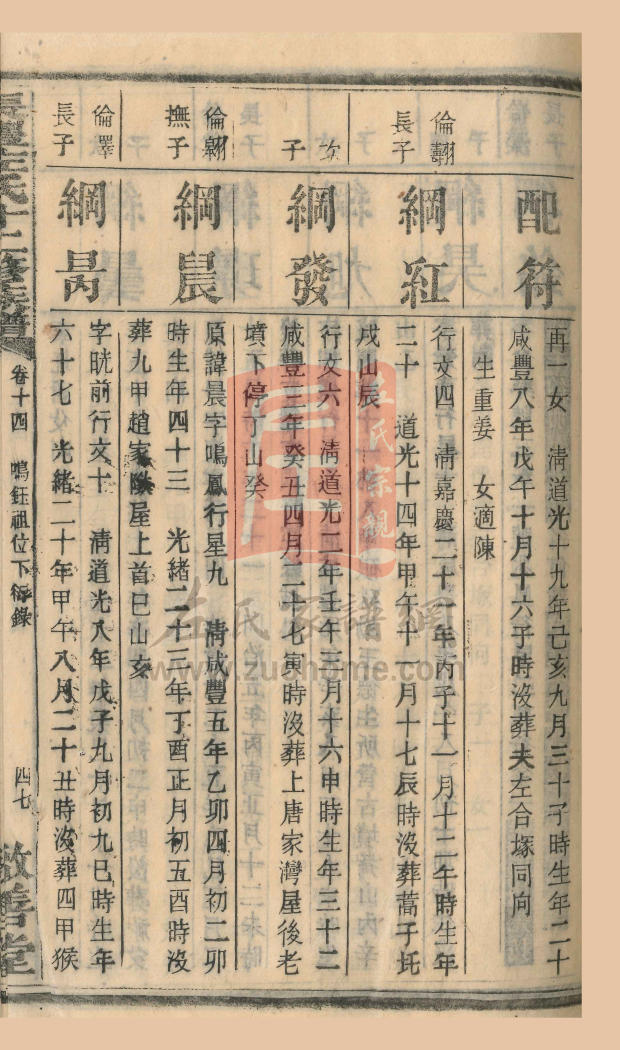 配符
再一女 清道光十九年己亥九月三十子時生年二十
咸豐八年戊午十月十六子時沒葬夫左合塚同向
生重姜 女適陳
倫翿長子
綱紅
行文四 清嘉慶二十一年丙子十一月十二午時生年
二十 道光十四年甲午十一月十七辰時沒葬蒿子托
戌山辰
次子
綱發
行文六 清道光二年壬午三月十六申時生年三十二
咸豐三年癸丑四月二十七寅時沒葬上唐家灣屋後老
墳下停丁山癸
倫翱撫子
綱晨
原諱晨字鳴鳳行星九 清咸豐五年乙卯四月初二卯
時生年四十三 光緒二十三年丁酉正月初五酉時沒
葬九甲趙家屋上首巳山亥
倫澤長子
綱昺
字晄前行文十 清道光八年戊子九月初九巳時生年
六十七 光緒二十年甲午八月二十丑時沒葬四甲猴
左氏十二修族譜
卷十四 鳴鈺祖位下衍錄
四七
敦善堂
左氏宗親
左氏家譜網
www.zushome.com